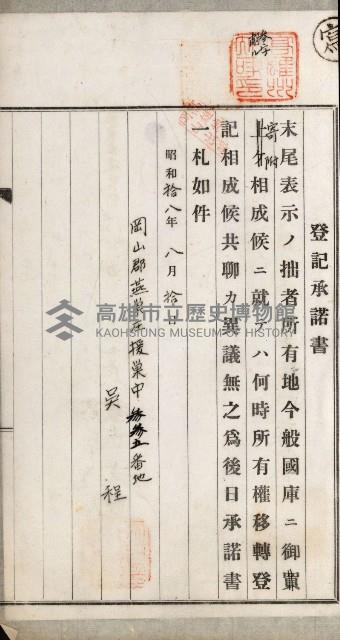 寫
登記承諾書
末尾表示ノ拙者所有地今般國庫ニ御買
寄附
上ケ相成候ニ就テハ何時所有權移轉登
記相成候共聊カ異議無之爲後日承諾書
一札如件
昭和拾八年八月拾日
岡山郡燕巢庄援巢中
番地
吳 程
高雄市立歷史博物館
KAOHSIUNG MUSEUM OF HISTORY